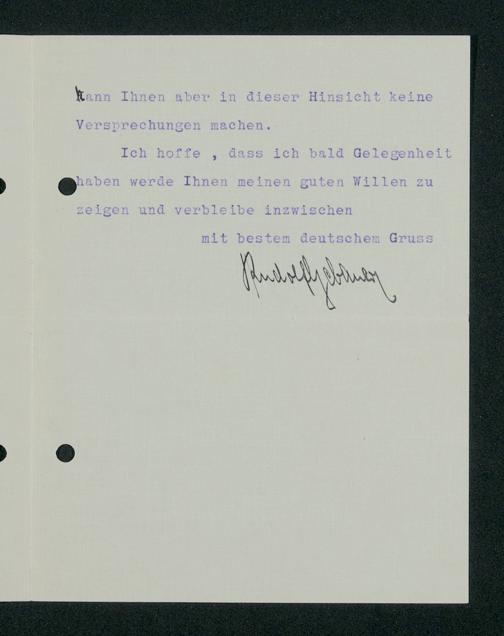 kann Ihnen aber in dieser Hinsicht keine
Versprechungen machen.
Ich hoffe , dass ich bald Gelegenheit
haben werde Ihnen meinen guten Willen zu
zeigen und verbleibe inzwischen
mit bestem deutschem Gruss
Rudolf